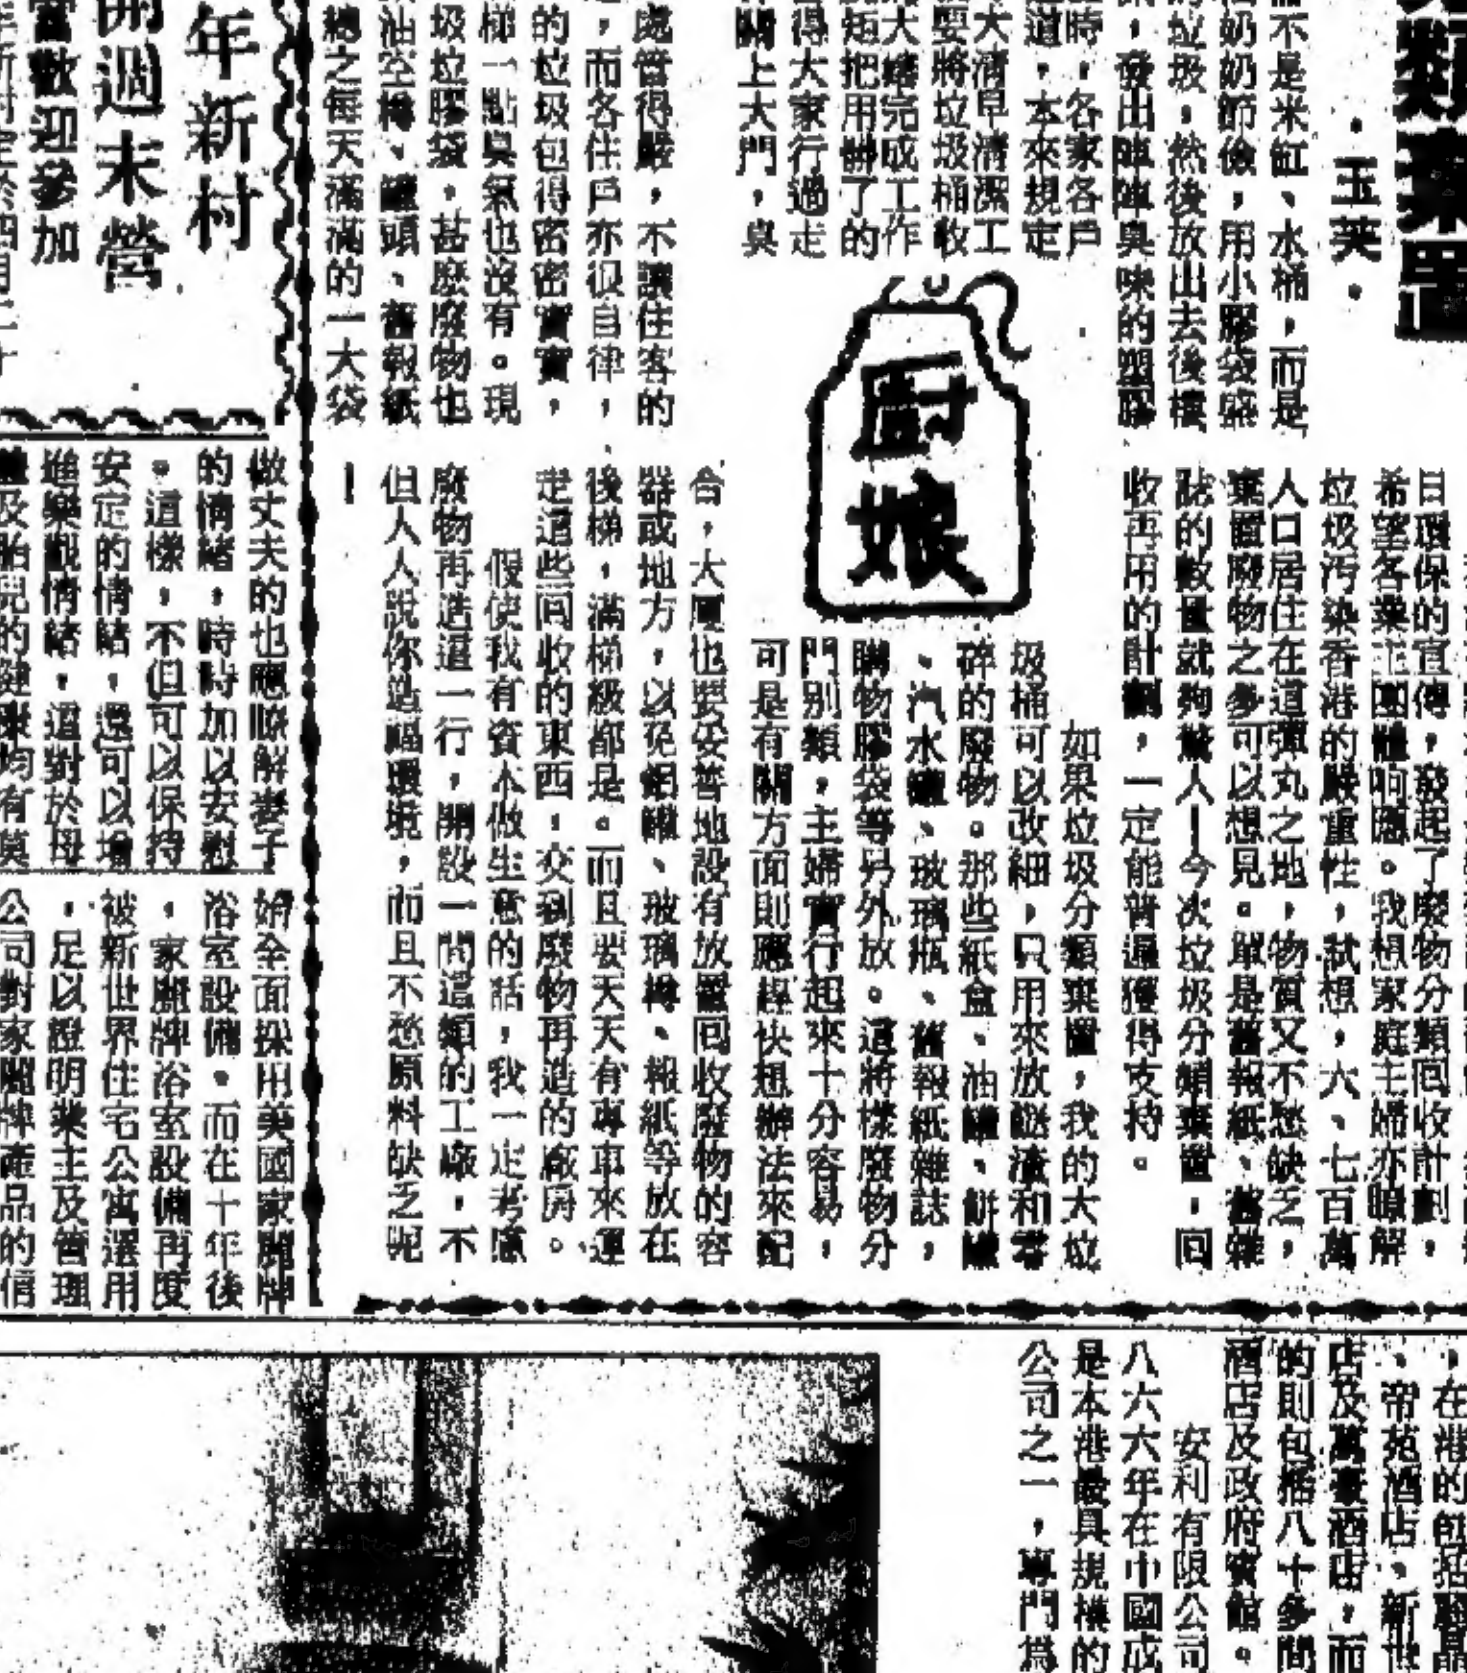 類棄置
·玉英·
不是米缸、水桶，而是
奶奶節儉，用小膠袋盛
垃圾，然後放出去後樓
，發出陣陣臭味的塑膠
時，各家各戶
道，本來規定
大清早清潔工
要將垃圾桶收
大嬸完成工作
短把用髒了的
得大家行過走
關上大門，臭
廚娘
處管得嚴，不讓住客的
，而各住戶亦很自律，
的垃圾包得密密實實，
梯一點臭氣也沒有。現
圾垃膠袋，甚麽廢物也
油空樽、罐頭、舊報紙
總之每天滿滿的一大袋
日環保的宣傳，發起了廢物分類回收計劃，
希望各業主團體响應。我想家庭主婦亦瞭解
垃圾污染香港的嚴重性，試想，六、七百萬
人口居住在這彈丸之地，物質又不愁缺乏，
棄置廢物之多可以想見。單是舊報紙、舊雜
誌的數量就夠驚人—今次垃圾分類棄置，回
收再用的計劃，一定能普遍獲得支持。
如果垃圾分類棄置，我的大垃
圾桶可以改細，只用來放餸渣和零
碎的廢物。那些紙盒、油罐、餅罐
、汽水罐、玻璃瓶、舊報紙雜誌，
購物膠袋等另外放。這將樣廢物分
門別類，主婦實行起來十分容易，
可是有關方面則應趕快想辦法來配
合，大厦也要妥善地設有放置回收廢物的容
器或地方，以免鋁罐、玻璃樽、報紙等放在
後梯，滿梯級都是。而且要天天有專車來運
走這些回收的東西，交到廢物再造的廠房。
假使我有資本做生意的話，我一定考慮
廢物再造這一行，開設一間這類的工廠，不
但人人說你造福環境，而且不愁原料缺乏呢
—
年新村
開週末營
歡迎參加
做丈夫的也應瞭解妻子
的情緒，時時加以安慰
。這樣，不但可以保持
安定的情緒，還可以增
進樂觀情緒，這對於母
體及胎兒的健康均有莫
始全面採用美國家麗牌
浴室設備。而在十年後
，家麗牌浴室設備再度
被新世界住宅公寓選用
，足以證明業主及管理
公司對家麗牌產品的信
，在港的包括
、帝苑酒店、新世
店及萬豪酒店，而
的則包括八十多間
酒店及政府賓館。
安利有限公司
八六六年在中國成
是本港最具規模的
公司之一，專門爲